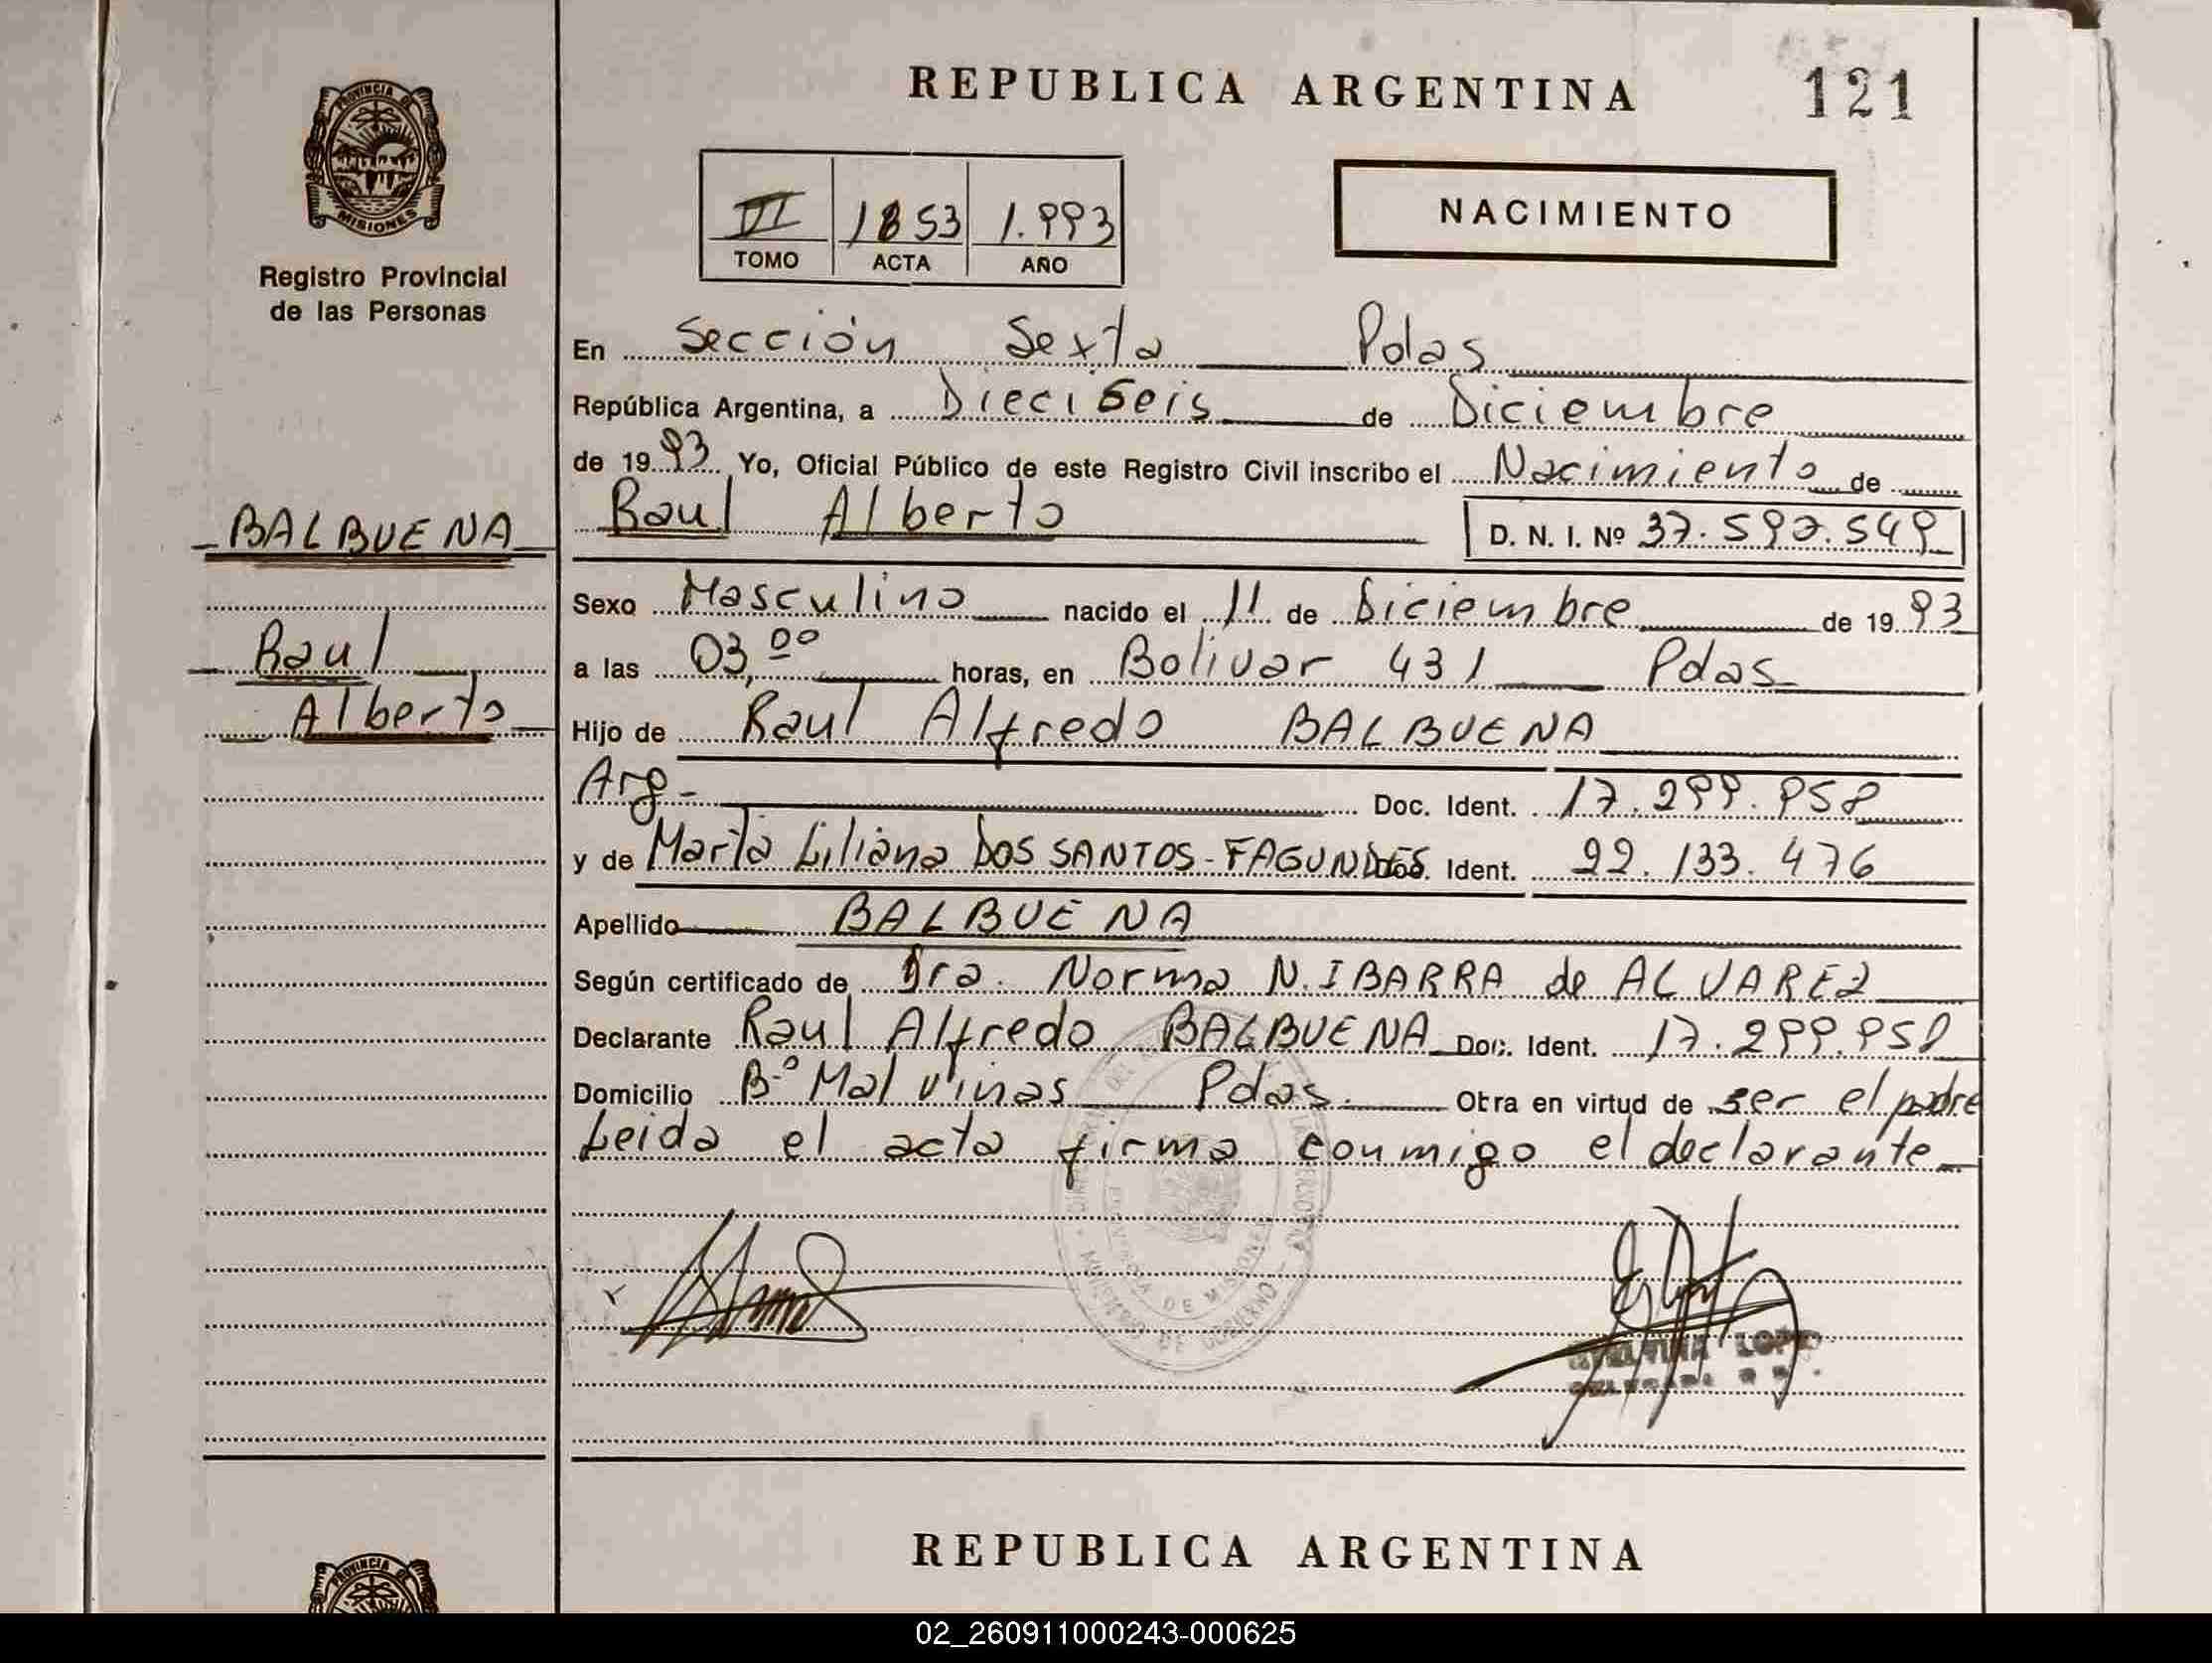 REPUBLICA ARGENTINA
121
PROVINCIA DE
MISIONES
Registro Provincial
de las Personas
VI 1853 1.993
TOMO ACTA AÑO
NACIMIENTO
En Sección Sexta Pdas
República Argentina, a Dieciseis de Diciembre
de 1993 Yo, Oficial Público de este Registro Civil inscribo el Nacimiento de
Raul Alberto
D. N. I. Nº 37.590.549
BALBUENA
Raul
Alberto
Sexo Masculino nacido el 11 de Diciembre de 1993
a las 03,00 horas, en Bolivar 431 Pdas
Hijo de Raul Alfredo BALBUENA
Arg- Doc. Ident. 17.299.958
y de Marta Liliana DOS SANTOS-FAGUNDES Ident. 22.133.476
Apellido BALBUENA
Según certificado de Dra. Norma N. IBARRA de ALVAREZ
Declarante Raul Alfredo BALBUENA Doc. Ident. 17.299.958
Domicilio Bº Malvinas Pdas. Otra en virtud de ser el padre
Leida el acta firma conmigo el declarante
PROVINCIA DE MISIONES
MINISTERIO DE GOBIERNO
REPUBLICA ARGENTINA
PROVINCIA DE
02_260911000243-000625